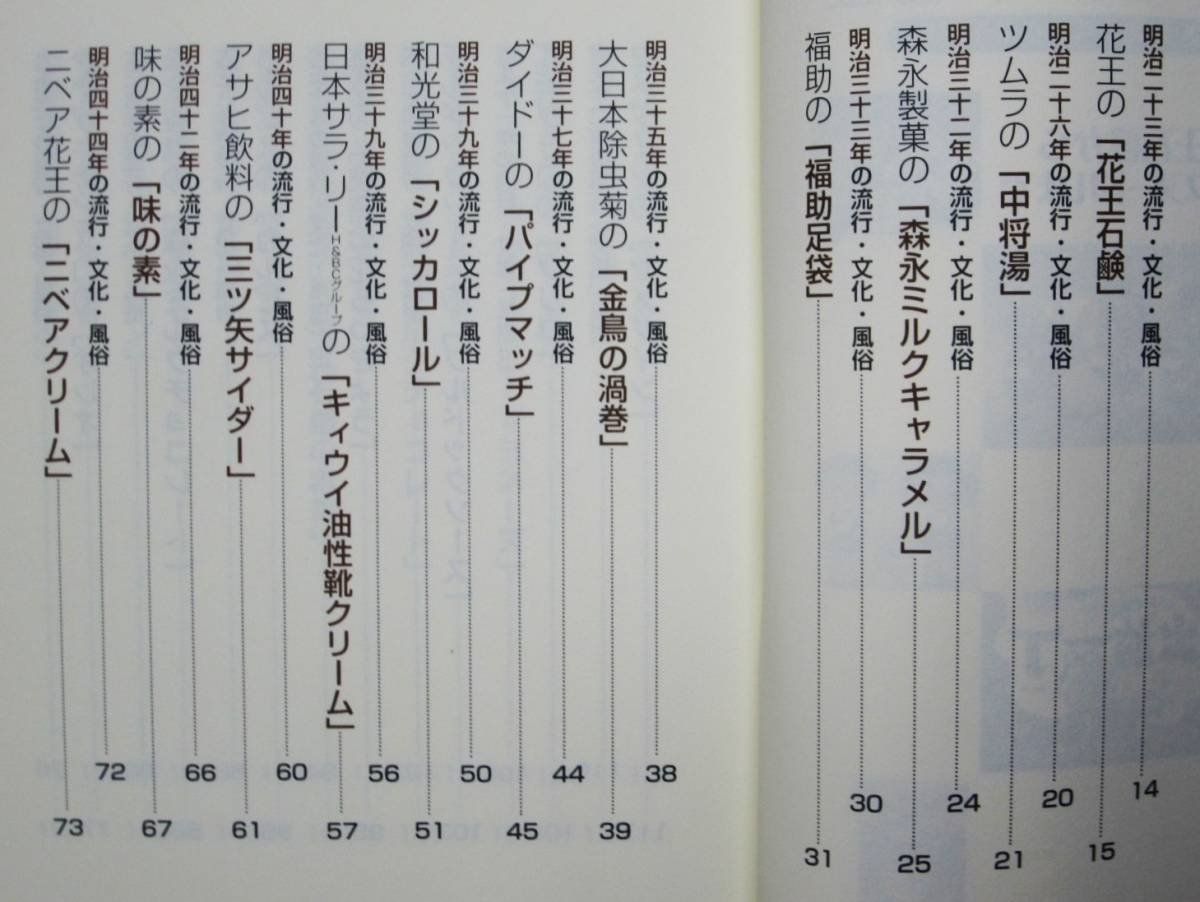 明治二十三年の流行・文化・風俗 14
花王の「花王石鹸」 15
明治二十六年の流行・文化・風俗 20
ツムラの「中将湯」 21
明治三十二年の流行・文化・風俗 24
森永製菓の「森永ミルクキャラメル」 25
明治三十三年の流行・文化・風俗 30
福助の「福助足袋」 31
明治三十五年の流行・文化・風俗 38
大日本除虫菊の「金鳥の渦巻」 39
明治三十七年の流行・文化・風俗 44
ダイドーの「パイプマッチ」 45
明治三十九年の流行・文化・風俗 50
和光堂の「シッカロール」 51
明治三十九年の流行・文化・風俗 56
日本サラ・リーH&BCグループの「キィウイ油性靴クリーム」 57
明治四十年の流行・文化・風俗 60
アサヒ飲料の「三ツ矢サイダー」 61
明治四十二年の流行・文化・風俗 66
味の素の「味の素」 67
明治四十四年の流行・文化・風俗 72
ニベア花王の「ニベアクリーム」 73